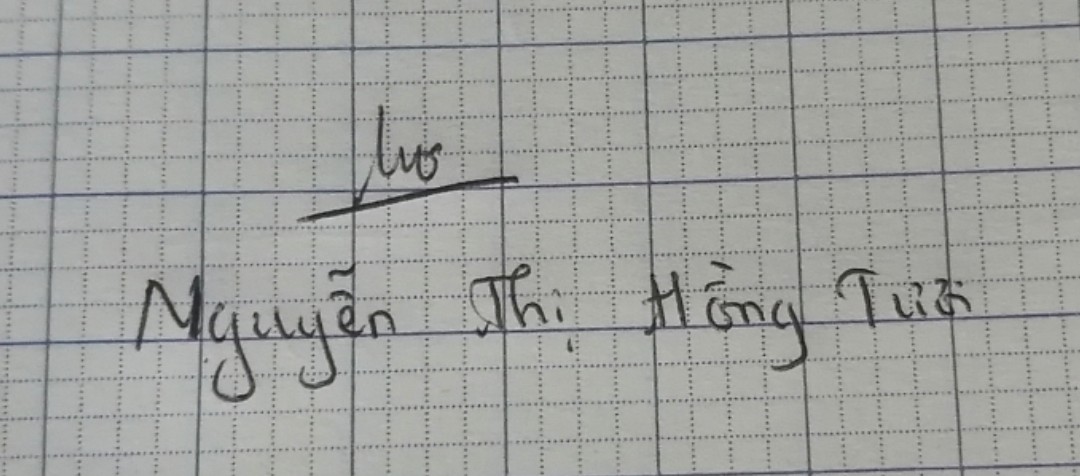 Nguyễn Thị Hồng Tươi